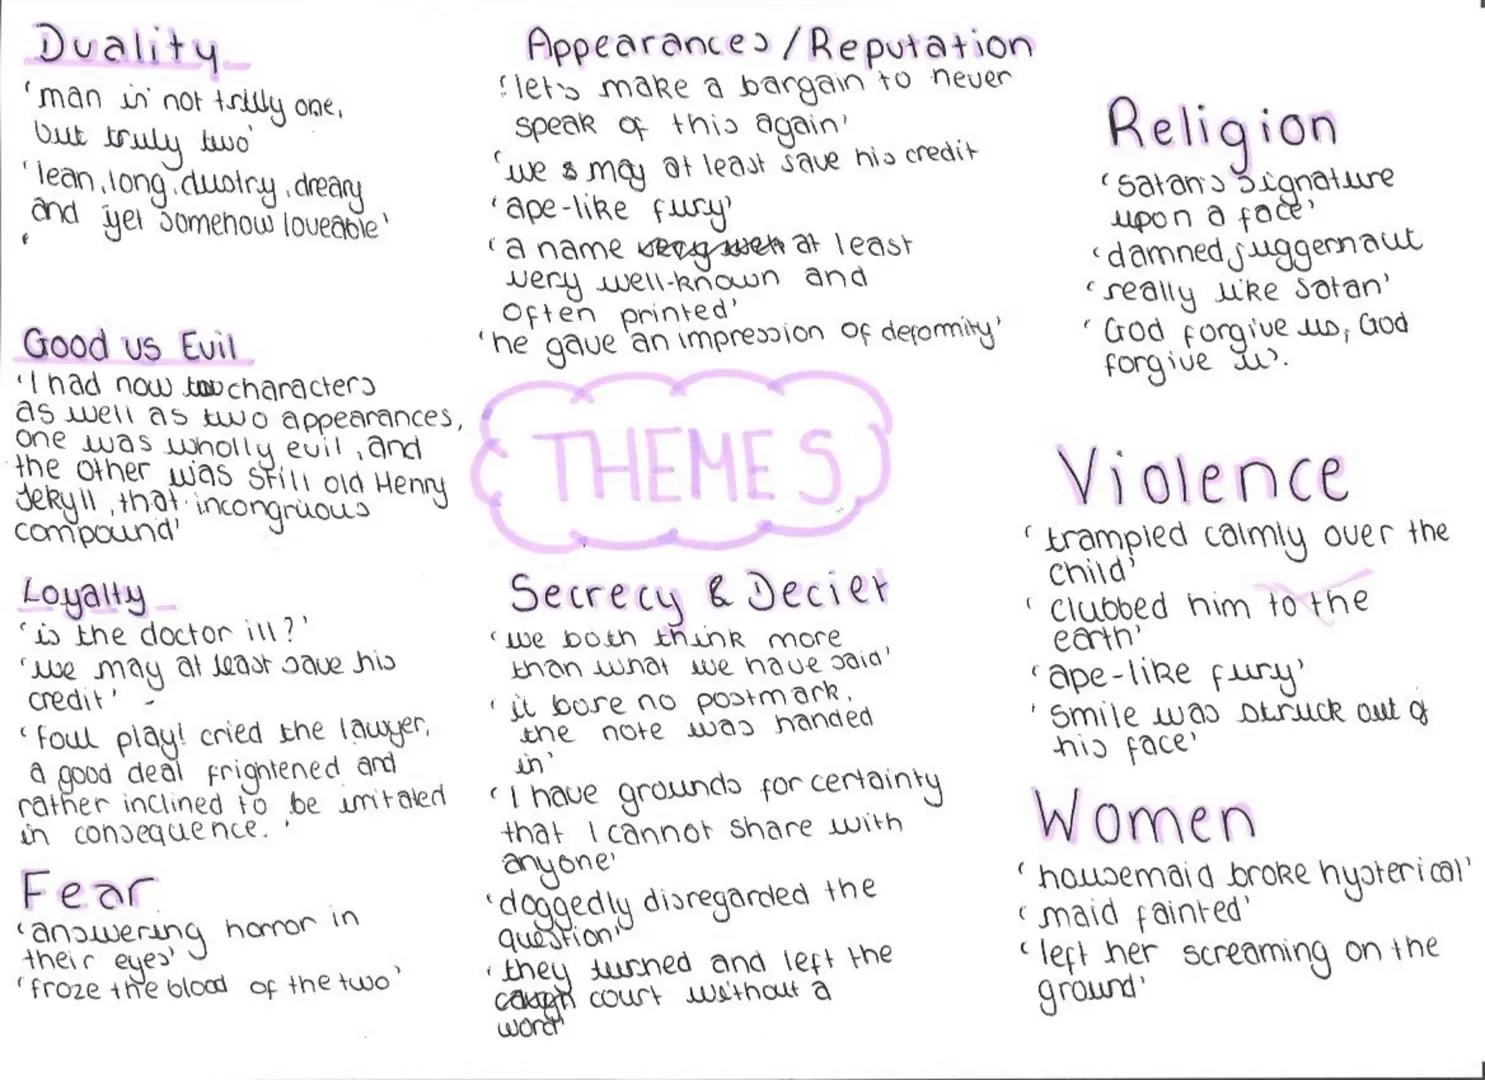 Duality
'man is not trully one,
but truly two'
'lean, long, dustry, dreary
and yet somehow loveable'
'
Good vs Evil
'I had now two characters
as well as two appearances,
one was wholly evil, and
the other was still old Henry
Jekyll, that incongruous
compound'
Loyalty
'is the doctor ill?'
'we may at least save his
credit'
'foul play! cried the lawyer,
a good deal frightened and
rather inclined to be irritated
in consequence.'
Fear
'answering horror in
their eyes'
'froze the blood of the two'
Appearances/Reputation
'let's make a bargain to never
speak of this again'
'we may at least save his credit
'ape-like fury'
'a name very well at least
very well-known and
often printed'
'he gave an impression of deformity'
THEMES
Secrecy & Deciet
'we both think more
than what we have said'
'it bore no postmark,
the note was handed
in'
'I have grounds for certainty
that I cannot share with
anyone'
'doggedly disregarded the
question'
'they turned and left the
court without a
word'
Religion
'Satan's signature
upon a face'
'damned juggernaut
'really like Satan'
'God forgive us, God
forgive us'.
Violence
'trampled calmly over the
child'
'clubbed him to the
earth'
'ape-like fury'
'smile was struck out of
his face'
Women
'housemaid broke hysterical'
'maid fainted'
'left her screaming on the
ground'